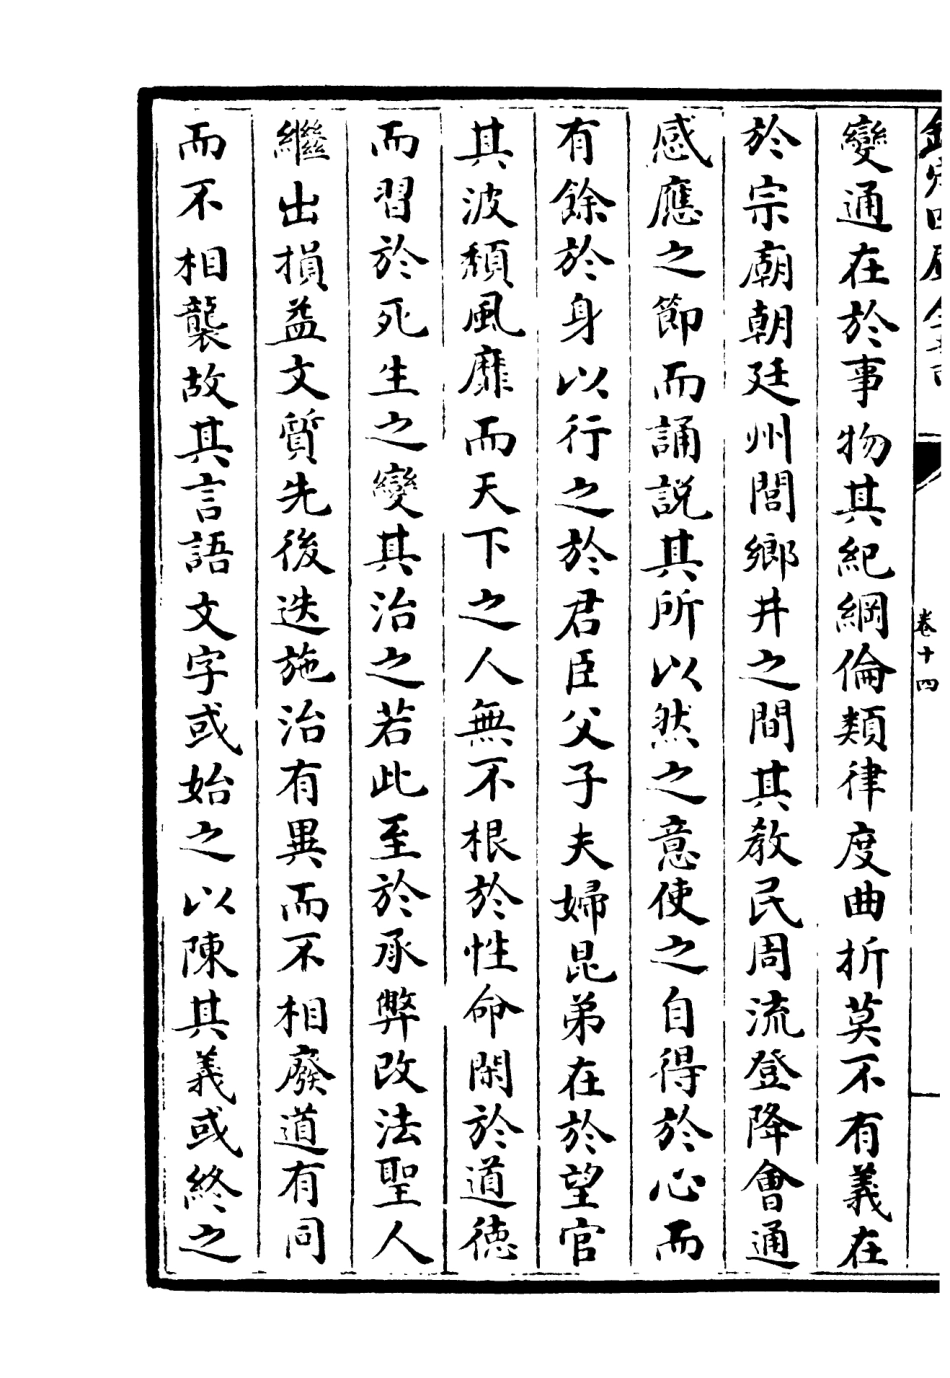 欽定四庫全書
卷十四
變通在於事物其紀綱倫類律度曲折莫不有義在
於宗廟朝廷州閭鄉井之間其教民周流登降會通
感應之節而誦説其所以然之意使之自得於心而
有餘於身以行之於君臣父子夫婦昆弟在於望官
其波頽風靡而天下之人無不根於性命閑於道徳
而習於死生之變其治之若此至於承弊改法聖人
繼出損益文質先後迭施治有異而不相廢道有同
而不相襲故其言語文字或始之以陳其義或終之